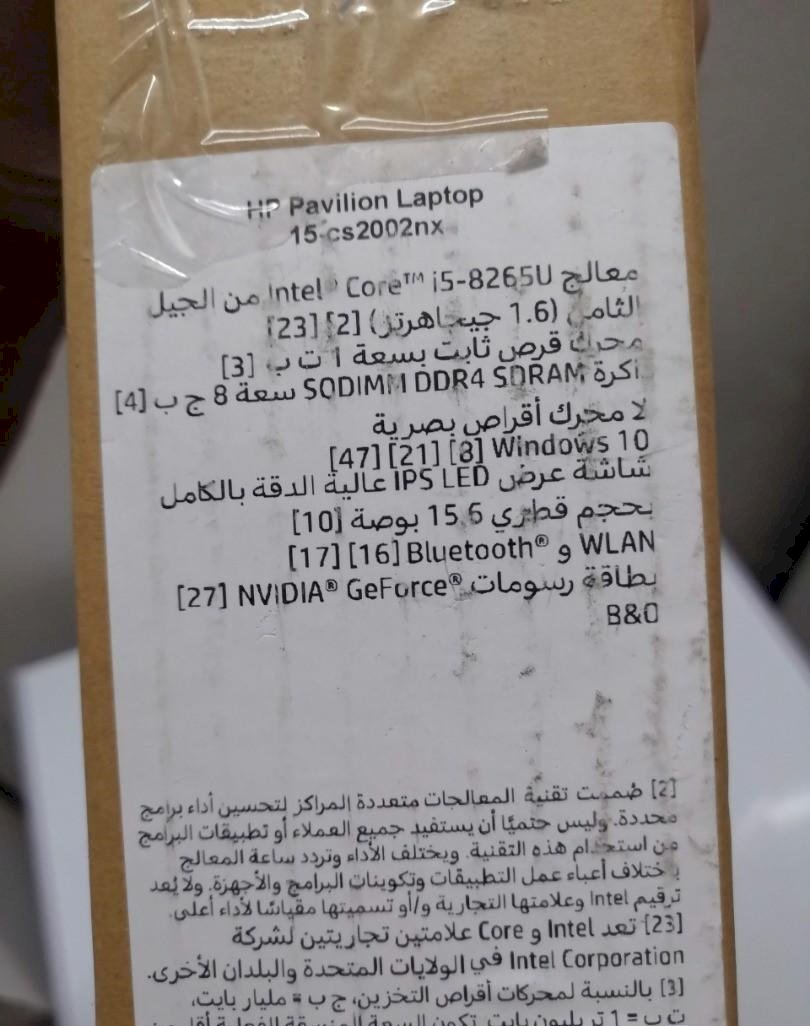 HP Pavilion Laptop
15-cs2002nx
معالج Intel® Core™ i5-8265U من الجيل
الثامن (1.6 جيجاهرتز) [2] [23]
محرك قرص ثابت بسعة 1 ت ب [3]
اكرة SODIMM DDR4 SDRAM سعة 8 ج ب [4]
لا محرك أقراص بصرية
Windows 10 [8] [21] [47]
شاشة عرض IPS LED عالية الدقة بالكامل
بحجم قطري 15.6 بوصة [10]
WLAN و Bluetooth® [16] [17]
بطاقة رسومات NVIDIA® GeForce® [27]
B&O
[2] صُممت تقنية المعالجات متعددة المراكز لتحسين أداء برامج
محددة. وليس حتميًا أن يستفيد جميع العملاء أو تطبيقات البرامج
من استخدام هذه التقنية. ويختلف الأداء وتردد ساعة المعالج
باختلاف أعباء عمل التطبيقات وتكوينات البرامج والأجهزة. ولا يُعد
ترقيم Intel وعلامتها التجارية و/أو تسميتها مقياسًا لأداء أعلى.
[23] تعد Intel و Core علامتين تجاريتين لشركة
Intel Corporation في الولايات المتحدة والبلدان الأخرى.
[3] بالنسبة لمحركات أقراص التخزين، ج ب = مليار بايت،
ت ب = 1 تريليون بايت. تكون السعة المنسقة الفعلية أقل من